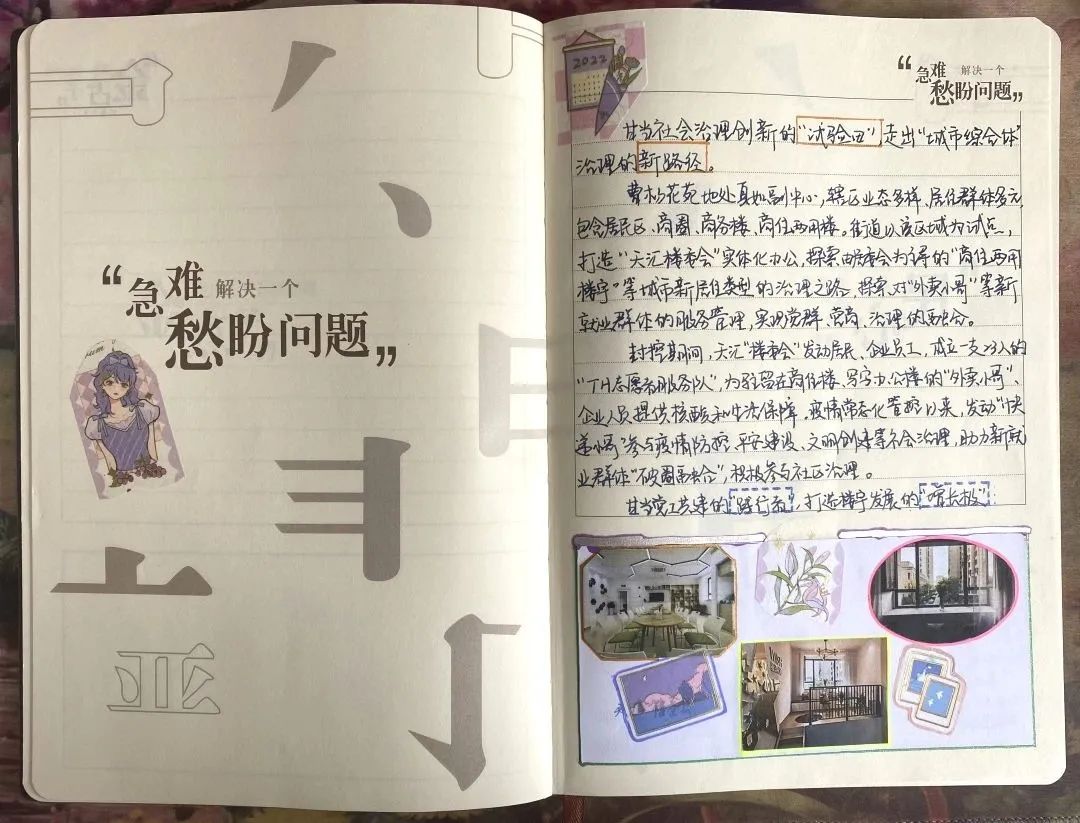 “急难 解决一个
愁盼问题”
2022
“急难 解决一个
愁盼问题”
甘当社会治理创新的“试验田”,走出“城市综合体”
治理的新路径。
曹杨花苑地处真如副中心,辖区业态多样、居住群体多元
包含居民区、商圈、商务楼、商住两用楼。街道以该区域为试点,
打造“天汇楼委会”实体化办公,探索由居委会为主的“商住两用
楼宇”等城市新居住类型的治理之路,探索对“外卖小哥”等新
就业群体的服务管理,实现党群、营商、治理的融合。
封控期间,天汇“楼委会”发动居民、企业员工,成立一支23人的
“TH志愿者服务队”,为驻留在商住楼、写字办公楼的“外卖小哥”、
企业人员提供核酸和生活保障。疫情常态化管控以来,发动“快
递小哥”参与疫情防控、平安建设、文明创建等社会治理,助力新就
业群体“破圈融合”,积极参与社区治理。
甘当党工共建的“践行者”,打造楼宇发展的“增长极”